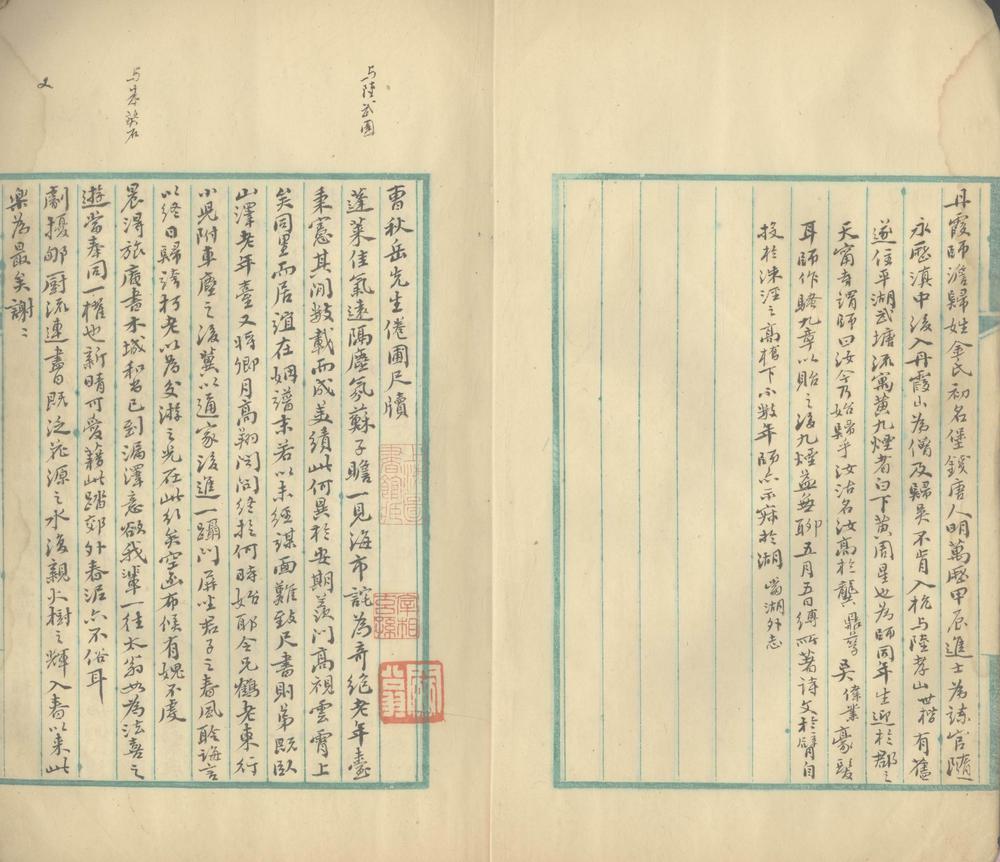 丹霞師澹歸姓金氏初名堡錢唐人明萬歷甲辰進士為諫官隨
永歷滇中後入丹霞山為僧及歸吳不肯入杭与陸孝山世楷有舊
遂住平湖武塘流寓黃九煙者白下黃周星也為師同年生迎於郡之
天甯寺謂師曰汝今乃始歸乎汝沽名汝高於龔鼎孳吳偉業豪髮
耳師作騷九章以貽之後九煙益無聊五月五日縛所著詩文於臂自
投於洙涇之高橋下不數年師亦示寂於湖 當湖外志
曹秋岳先生倦圃尺牘
与陸武園
蓬萊佳氣遠隔塵氛蘇子瞻一見海市詫為奇絕老年臺
秉憲其間數載而成美績此何異於安期羨門高視雲霄上
矣同里而居誼在姻譜末若以未經謀面難致尺書則弟既臥
山澤老年臺又將卿月高翔問問終於何時始耶令兄鶴老東行
小兒附車塵之後冀以通家後進一躡門屏坐君子之春風聆誨言
以終日歸誇朽老以為交游之光在此行矣空函布候有媿不虔
与朱葵石
晨得旅庵書木城和尚已到漏澤意欲我輩一往太翁如為法喜之
遊當奉同一櫂也新晴可愛藉此踏郊外春泥亦不俗耳
又
劇擾郇廚流連書日既泛花源之水復親火樹之輝入春以來此
樂為最矣謝〻